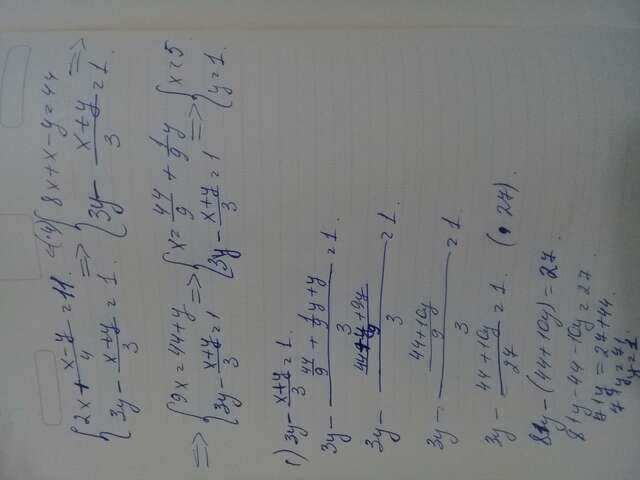 {2x + (x-y)/4 = 11. |·(4) => {8x + x - y = 44 =>
{3y - (x+y)/3 = 1. {3y - (x+y)/3 = 1.
=> {9x = 44 + y => {x = 44/9 + 1/9 y => {x = 5
{3y - (x+y)/3 = 1 {3y - (x+y)/3 = 1 {y = 1.
1) 3y - (x+y)/3 = 1.
3y - (44/9 + 1/9 y + y)/3 = 1.
3y - ((44+y+9y)/9)/3 = 1.
3y - ((44+10y)/9)/3 = 1.
3y - (44+10y)/27 = 1. (·27).
81y - (44+10y) = 27
81y - 44 - 10y = 27.
71y = 27 + 44.
71y = 71
y = 1.